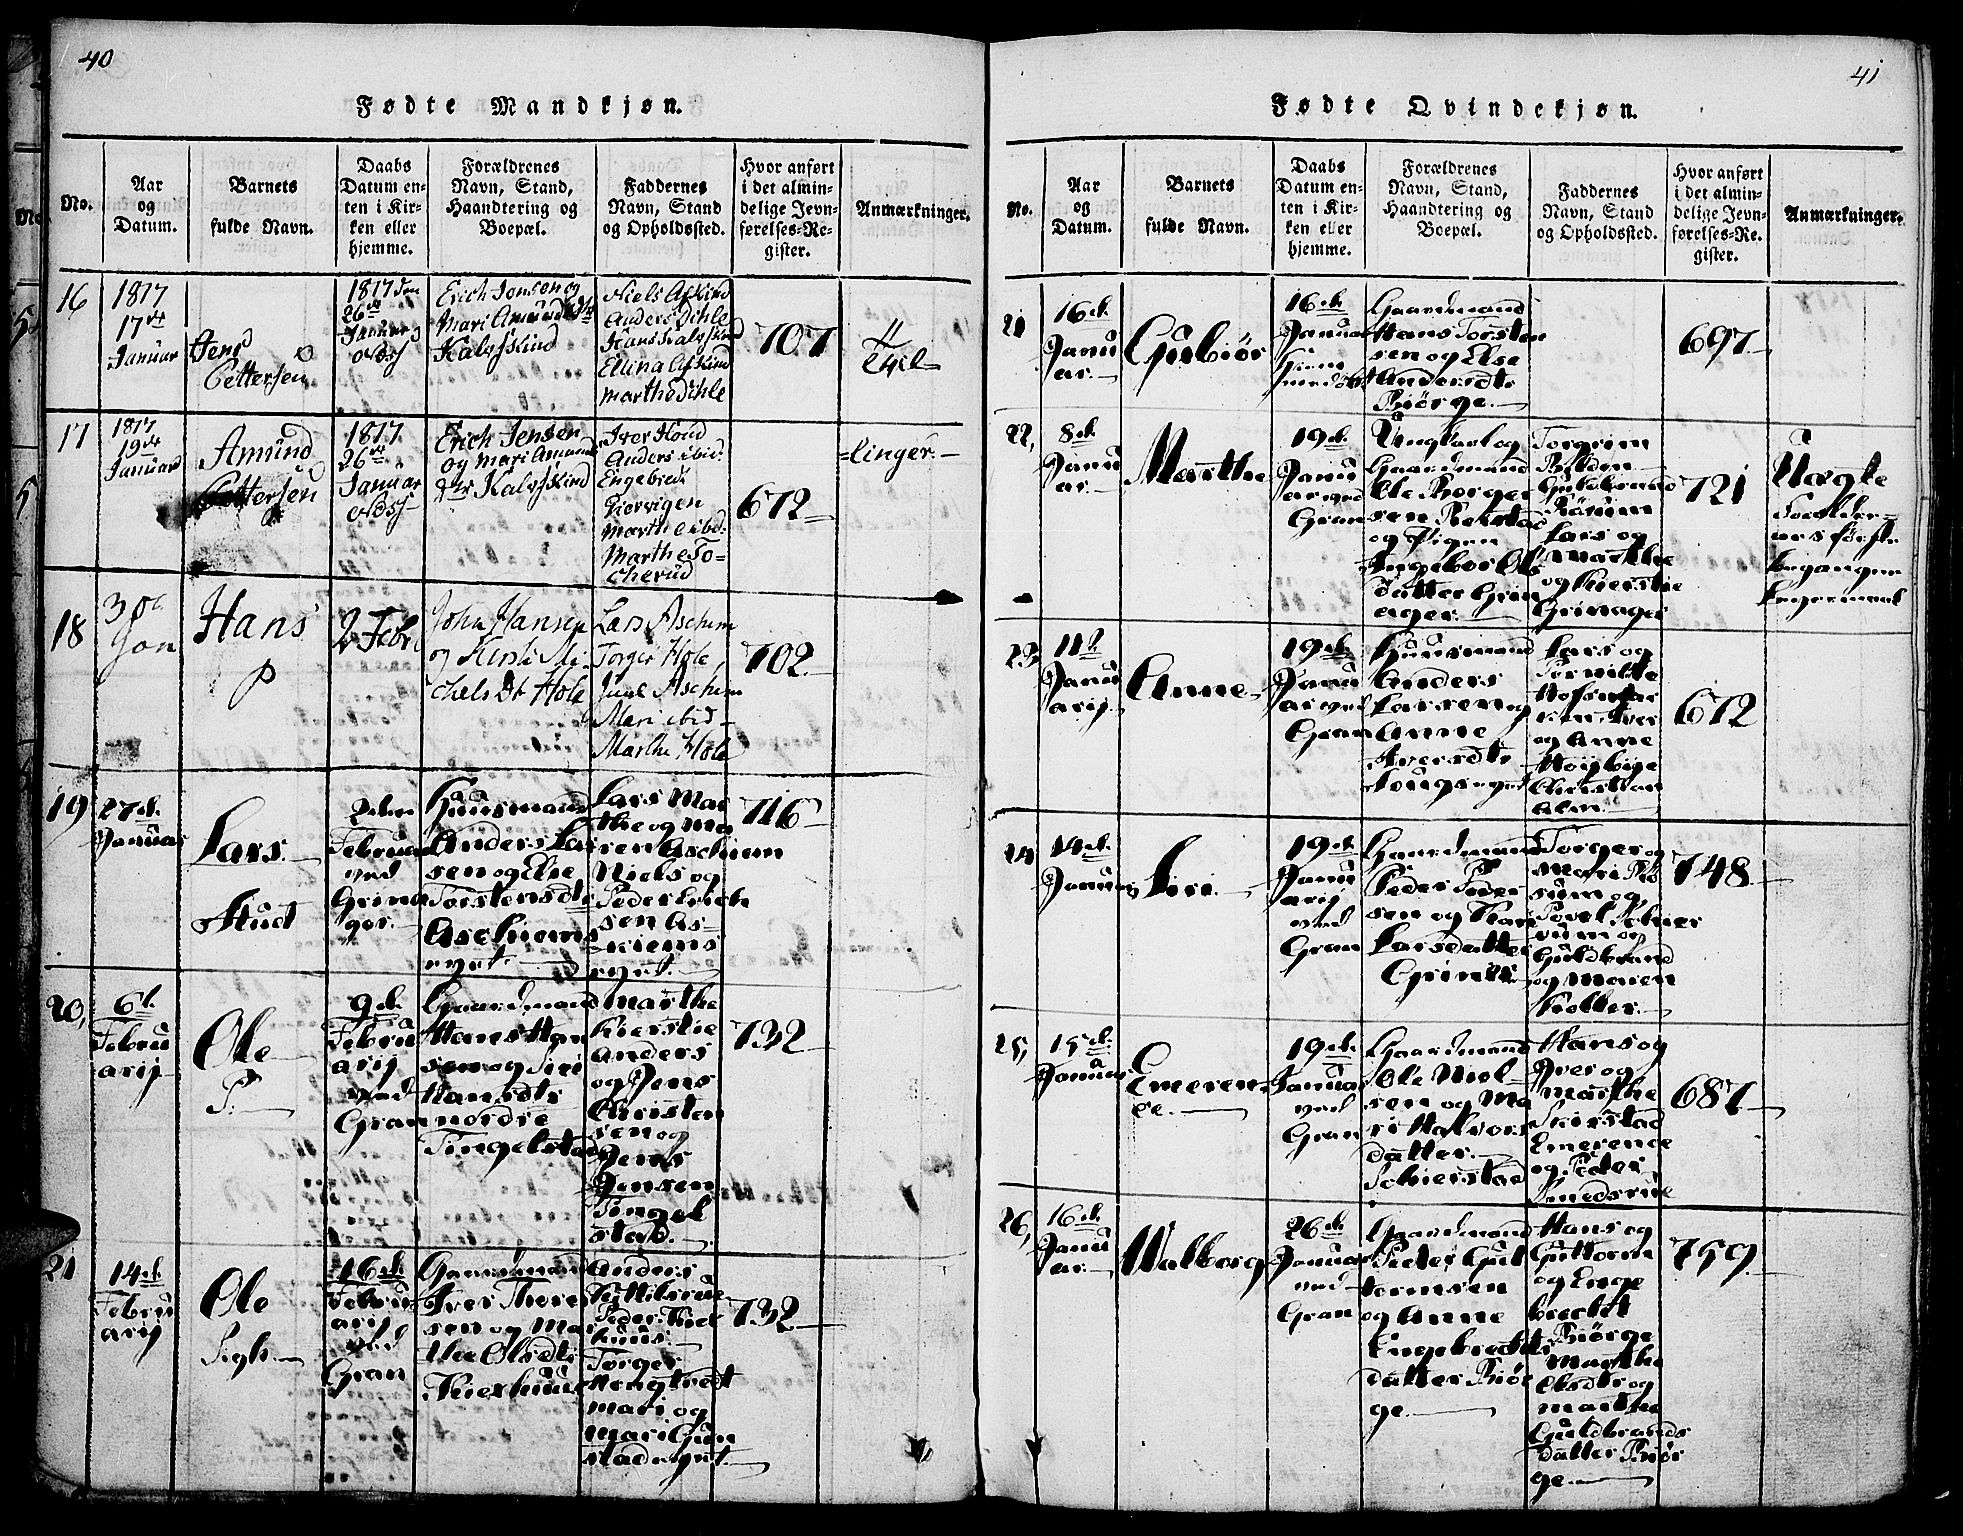 40
Fødte Mandkjøn.
No.
Aar
og
Datum.
Barnets
fulde Navn.
Daabs
Datum en-
ten i Kir-
ken eller
hjemme.
Forældrenes
Navn, Stand,
Haandtering og
Boepæl.
Faddernes
Navn, Stand
og Opholdssted.
Hvor anført
i det almin-
delige Jevn-
førelses-Re-
gister.
Anmærkninger.
16
1817
17de
Januar
Jens
Pettersen
1817 den
26de
Januar
Erich Jonsen og
Mari Amunds
Kalvskind
Anders Dihle
Hans Kalvskind
Marthe Dihle
707
17
1817
19de
Januar
Amund
Pettersen
1817
26de
Januar
Erich Jensen
og Mari Amunds
Kalvskind
Anders ibid:
Engebred
Marthe ibid:
Marthe To-
cherud
672
18
30te
Jan
Hans
2 Febr
John Hansen
og Kirsti Mi-
chels Dt Hole
Lars Aschem
Torger Hole,
Juul Aschem
Mari ibid
Marthe Hole
702
19
27d.
Januar
Lars
2den
Februar
ved
Grina
ger.
Huusmand
Anders Lar
sen og Else
Torstensdtr
Aschiems
eyet.
Lars Mar
the og Ma
ren Aschiem
Niels og
Peder Erich
sen As-
kiems
eyet.
716
20,
6t.
Febru
arij
Ole
9d.
Febru
arij
ved
Gran
Gaardmand
Hans Han
sen og Siri
Hansdtr
nordre
Tingelstad
Marthe
Kierstie
Anders
og Jens
Christen
sen og
Jens
Jensen
Tingel
stad.
732
21
14d.
Febru
arij
Ole
16d.
Febru
arij
ved
Gran
Gaardmand
Iver Thore
sen og Mar
the Olsdtr
Anders
Peder
Torger
Mari og
Mari Gun
stad eyet.
732
41
Fødte Qvindekjøn.
No.
Aar
og
Datum.
Barnets
fulde Navn.
Daabs
Datum en-
ten i Kir-
ken eller
hjemme.
Forældrenes
Navn, Stand,
Haandtering og
Boepæl.
Faddernes
Navn, Stand
og Opholdssted.
Hvor anført
i det almin-
delige Jevn-
førelses-Re-
gister.
Anmærkninger.
21
16d.
Janu
ar.
Gubiør
16d.
Januar
Hiem
medøbt
Gaardmand
Hans Torsten
sen og Else
Andersdtr
Biørge.
697
22,
8d.
Janu
ar.
Marthe
19d.
Janu
ar ved
Gran
Ungkarl og
Gaardmand
Ole Borger
sen Rekstad
og Pigen
Ingebor Ols
datter Grin
ager.
Torgrim
Gulbrand
Røsum
Lars og
Marthe
og Kierstie
Grinager
721
Uægte
Foreldre-
ars første
begangne
Leyermaal
23,
11t.
Janu
arij.
Anne
19d.
Janu
ar ved
Gran
Huusmand
Anders
Larsen og
Anne
Iversdtr
Lars og
Iver
og Anne
672
24
14d.
Januar
Siri
19d.
Janu
arij
ved
Gran
Gaardmand
Peder Peder
sen og Kari
Larsdatter
Torger og
Mari Rø
sum og
Povel
Guldbrand
og Maren
748
25,
15d.
Januar
Emeren
ce.
19d.
Januar
ved
Gran
Gaardmand
Ole Niel-
sen og Ma
ri Halvors
datter
Schierstad
Hans og
Iver og
Marthe
Skirstad
Emerence
og Peder
Smedsrue
687
26,
16d.
Janu
ar.
Walborg
26d.
Januar
ved
Gran
Gaardmand
Peder Gut
tormsen
og Anne
Engebrechts
datter Biør
ge.
Hans og
Guttorm
og Enge
brecht
Biørge
Marthe
Olsdtr og
Marthe
Guldbrands
datter Biør
ge
759